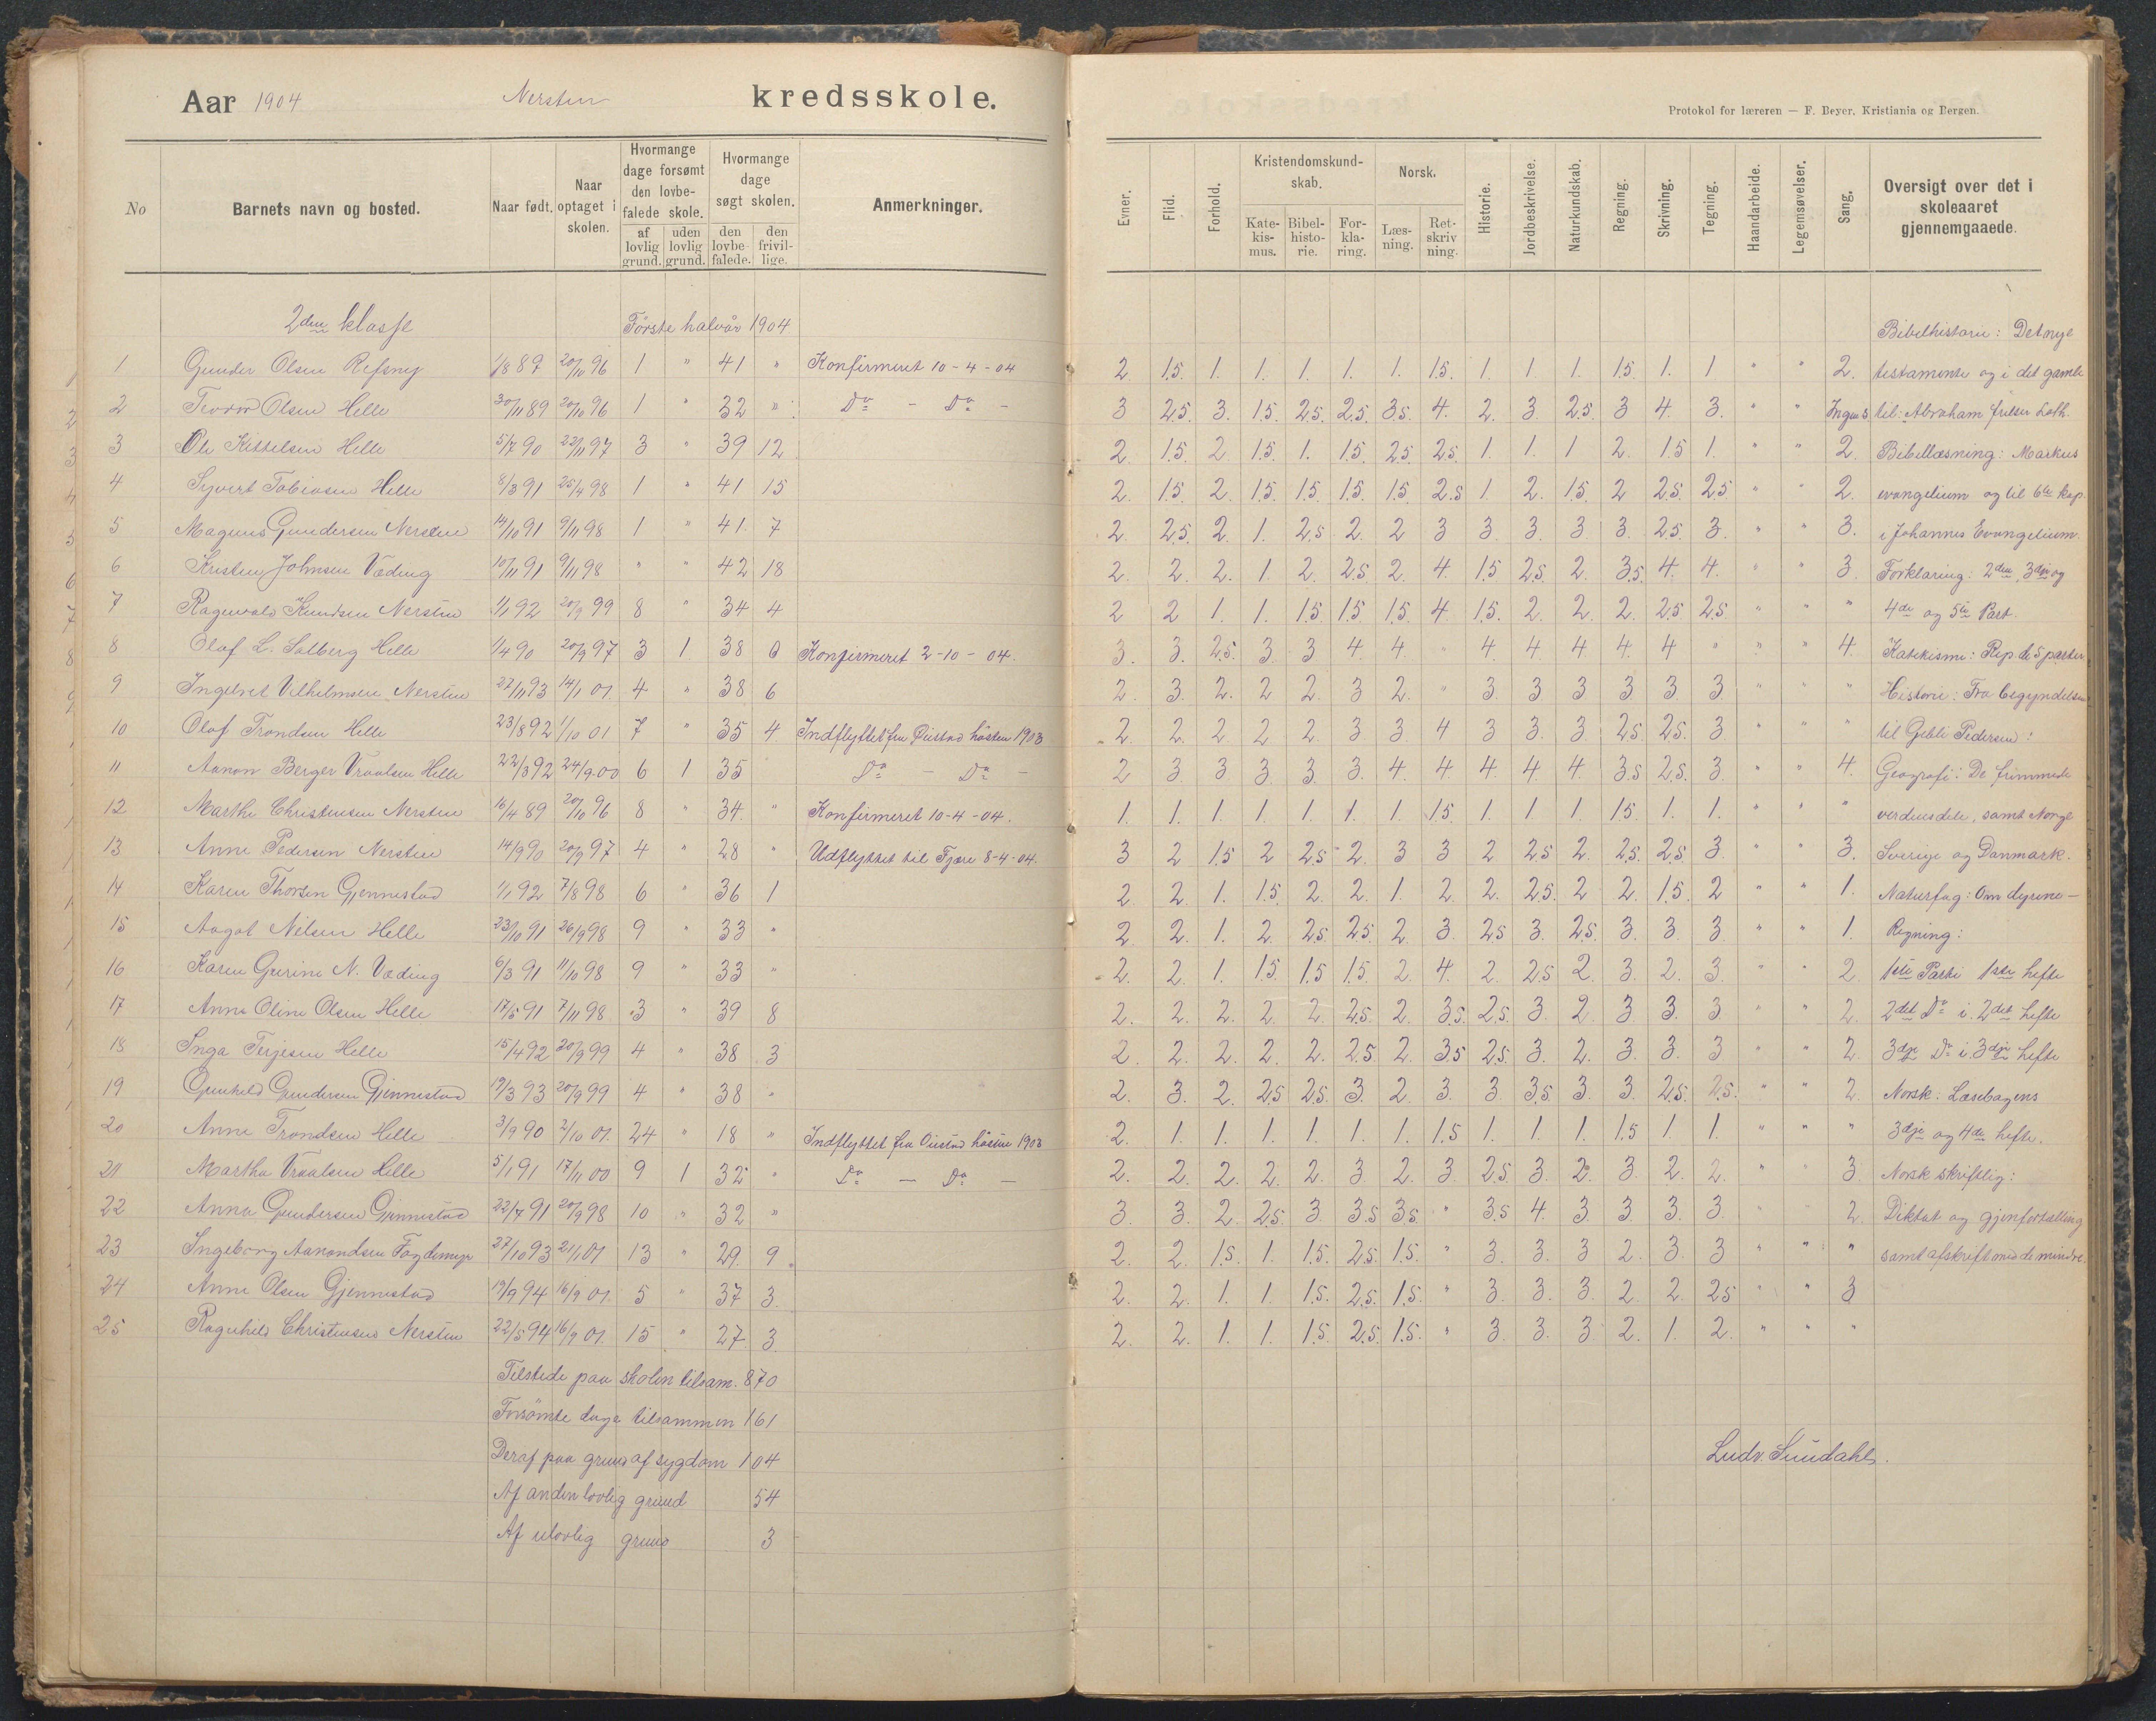 Aar 1904 Nersten kredsskole.
Protokol for læreren — F. Beyer, Kristiania og Bergen.
No Barnets navn og bosted. Naar født. Naar optaget i skolen. Hvormange dage forsømt den lovbefalede skole. af lovlig grund. uden lovlig grund. Hvormange dage søgt skolen. den lovbefalede. den frivillige. Anmerkninger. Evner. Flid. Forhold. Kristendomskundskab. Katekismus. Bibelhistorie. Forklaring. Norsk. Læsning. Retskrivning. Historie. Jordbeskrivelse. Naturkundskab. Regning. Skrivning. Tegning. Haandarbeide. Legemsøvelser. Sang. Oversigt over det i skoleaaret gjennemgaaede.
2den klasse Første halvår 1904 Bibelhistorie: Det nye
1 Gunder Olsen Refsnes 1/8 89 20/10 96 1 " 41 " Konfirmeret 10-4-04 2 1.5. 1. 1. 1. 1. 1. 1.5. 1. 1. 1. 1.5 1. 1 " " 2. testamente og i det gamle
2 Olsen Helle 30/11 89 20/10 96 1 " 32 " Do - Do - 3 2.5. 3. 1.5. 2.5. 2.5. 3.5. 4. 2. 3. 2.5. 3 4. 3. " " Ingen S. til: Abraham frelser Loth.
3 Ole Kittelsen Helle 5/7 90 22/11 97 3 " 39 12 2. 1.5. 2 1.5. 1. 1.5. 2.5. 2.5. 1. 1. 1 2. 1.5 1. " " 2. Bibellæsning: Markus
4 Syvert Tobiasen Helle 8/3 91 25/4 98 1 " 41 15 2. 1.5. 2. 1.5. 1.5. 1.5. 1.5 2.5 1. 2. 1.5 2 2.5. 2.5. " " 2 evangelium og til 6te kap.
5 Magnus Gundersen Nersten 14/10 91 9/11 98 1 " 41. 7 2. 2.5. 2. 1. 2.5. 2. 2 3 3. 3. 3. 3. 2.5. 3. " " 3. i Johannes Evangelium.
6 Kristen Johnsen Væding 10/11 91 9/11 98 " " 42 18 2. 2. 2. 1. 2. 2.5. 2. 4. 1.5 2.5. 2. 3.5. 4. 4. " " 3. Forklaring: 2den, 3dje og
7 Ragnvald Knudsen Nersten 1/1 92 20/9 99 8 " 34 4 2 2 1. 1. 1.5 1.5 1.5 4 1.5. 2. 2. 2. 2.5 2.5 " " " 4de og 5te Part.
8 Olaf L. Salberg Helle 1/4 90 20/9 97 3 1 38 0 Konfirmeret 2-10-04. 3. 3. 2.5. 3. 3 4. 4. " 4. 4. 4. 4. 4 " " " 4. Katekisme: Rep de 5 parter
9 Ingelvet Vilhelmsen Nersten 27/11 93 14/1 01 4 " 38 6 2. 3. 2. 2 2. 3 2. " 3. 3 3 3 3 3 " " " Historie: Fra begyndelsen
10 Olaf Trondsen Helle 23/8 92 1/10 01 7 " 35 4 Indflyttet fra Øiestad høsten 1903 2. 2. 2. 2. 2. 3 3. 4 3 3. 3. 2.5. 2.5. 3. " " " til Geble Pedersen:
11 Aanon Berger Vraalsen Helle 22/3 92 24/9 00 6 1 35 Do - Do - 2 3. 3 3. 3. 3. 4. 4. 4. 4. 4. 3.5 2.5. 3. " " 4. Geografi: De fremmede
12 Marthe Christensen Nersten 16/4 89 20/10 96 8 " 34 " Konfirmeret 10-4-04. 1. 1. 1. 1. 1. 1. 1. 1.5. 1. 1. 1. 1.5. 1. 1. " " " verdensdele, samt Norge
13 Anne Pedersen Nersten 14/9 90 20/9 97 4 " 28 " Udflyttet til Fjære 8-4-04. 3 2 1.5 2 2.5 2. 3 3 2 2.5 2. 2.5. 2.5. 3. " " 3. Sverige og Danmark.
14 Karen Thorsen Gjennestad 1/1 92 7/8 98 6 " 36 1 2 2. 1. 1.5. 2. 2. 1. 2. 2. 2.5. 2 2. 1.5 2 " " 1. Naturfag: Om dyrene-
15 Aagot Nilsen Helle 23/10 91 26/9 98 9 " 33 " 2. 2. 1. 2. 2.5. 2.5. 2. 3. 2.5 3. 2.5. 3. 3. 3 " " 1. Regning:
16 Karen Gurine N. Væding 6/3 91 11/10 98 9 " 33 " 2. 2. 1. 1.5. 1.5 1.5 2 4. 2. 2.5 2. 3. 2. 3. " " 2. 1ste Parti 1ste hefte
17 Anna Oline Olsen Helle 17/5 91 7/11 98 3 " 39 8 2. 2. 2. 2. 2. 2.5. 2. 3.5. 2.5. 3. 2 3 3. 3 " " 2. 2det Do i 2det hefte
18 Inga Terjesen Helle 15/4 92 20/9 99 4 " 38 3 2. 2. 2. 2. 2. 2.5. 2. 3.5 2.5. 3. 2. 3. 3. 3 " " 2. 3dje Do i 3dje hefte
19 Gunhild Gundersen Gjennestad 19/3 93 20/9 99 4 " 38 " 2. 3. 2. 2.5 2.5. 3. 2. 3. 3. 3.5 3. 3. 2.5. 2.5. " " 2. Norsk: Læsebogens
20 Anne Trondsen Helle 3/9 90 2/10 01. 24 " 18 " Indflyttet fra Øiestad høsten 1903 2. 1. 1. 1. 1. 1. 1. 1.5 1. 1. 1. 1.5 1. 1. " " " 3dje og 4de hefte.
21 Martha Vraalsen Helle 5/1 91 17/11 00 9 1 32 " Do - Do - 2. 2. 2. 2. 2. 3. 2. 3. 2.5. 3. 2. 3. 2. 2. " " 3. Norsk skriftlig:
22 Anna Gundersen Gjennestad 22/7 91 20/9 98 10 " 32 " 3. 3. 2. 2.5. 3 3.5 3.5. " 3.5 4. 3. 3. 3. 3. " " 2. Diktat og gjenfortælling
23 Ingeborg Aanondsen 27/10 93 21/1 01 13 " 29. 9 2. 2. 1.5. 1. 1.5. 2.5. 1.5. " 3. 3. 3 2. 3. 3 " " " samt afskrift med de mindre.
24 Anne Olsen Gjennestad 19/9 94 16/9 01. 5 " 37 3. 2. 2. 1. 1. 1.5. 2.5. 1.5. " 3. 3. 3. 2 2. 2.5 " " 3
25 Ragnhild Christensen Nersten 22/5 94 16/9 01 15 " 27. 3. 2. 2. 1. 1. 1.5. 2.5. 1.5. " 3. 3. 3. 2. 1. 2. " " "
Tilstede paa skolen tilsam. 870
Forsømte dage tilsammen 161
Deraf paa grund af sygdom 104
Ludv. Sundahl.
Af anden lovlig grund 54
Af ulovlig grund 3